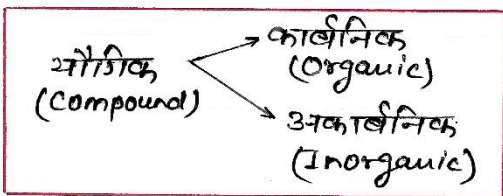 यौगिक
(Compound)
कार्बनिक
(Organic)
अकार्बनिक
(Inorganic)